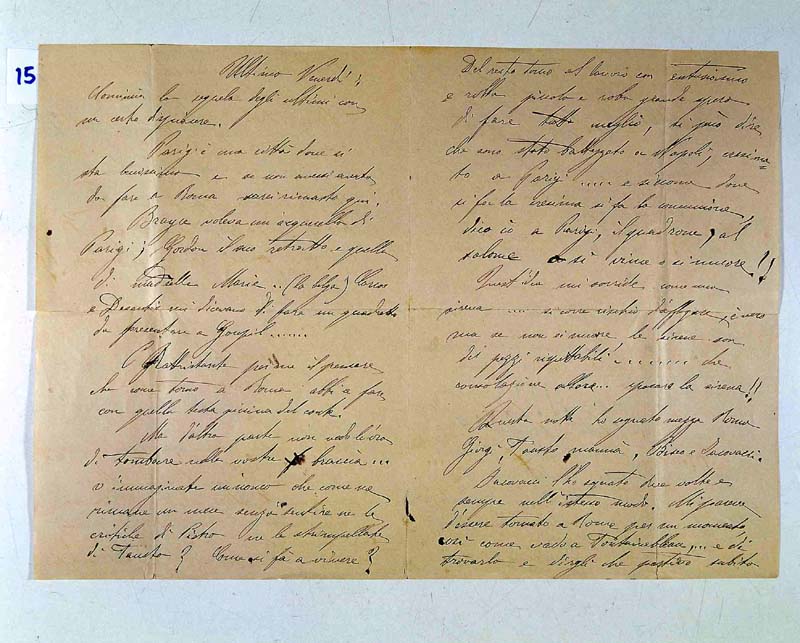 15
Ultimo Venerdì;
comincia la seguela degli ultimi con
un certo dispiacere.
Parigi è una città dove si
sta benissimo e se non avessi avuto
da fare a Roma sarei rimasto qui.
Brayer voleva un acquerello di
Parigi, Gordon il suo ritratto e quello
di madelle Maria ... (la belga)
e mi dicevano di fare un quadretto
da presentare a Goupil ......
È Rattristante per me il pensare
che come torno a Roma abbia a fare
con quella testa piccina del conte.
Ma d'altra parte non vedo l'ora
di tombare nelle vostre braccia ...
v'immaginate che come
rimane un mese senza sentire ne le
di ne le strimpellate
di Fausto? Come si fa a vivere?
Del resto torno al lavoro con entusiasmo
e rotta piccola o roba grande spero
di fare tutto meglio, si può dire
che sono stato battezzato a Napoli, cresima=
to a Parigi ..... e siccome dove
si fa la cresima si fa la comunione,
dico io a Parigi, il quadrone, al
salone o si vince o si muore!!
Quest'idea mi sorride come una
sirena .... si corre rischio d'affogare, è vero
ma se non si muore, le sirene son
dei pezzi rispettabili ......... che
consolazione allora... sposare la sirena!!
Questa notte ho sognato mezza Roma
Giorgi, Fausto, mammà, Biseo e Jacovacci.
Jacovacci l'ho sognato due volte e
sempre nell'istesso modo. Mi pareva
d'essere tornato a Roma per un momento,
così come vado a Fontainebleau, ... e di
trovarlo e dirgli che partivo subito